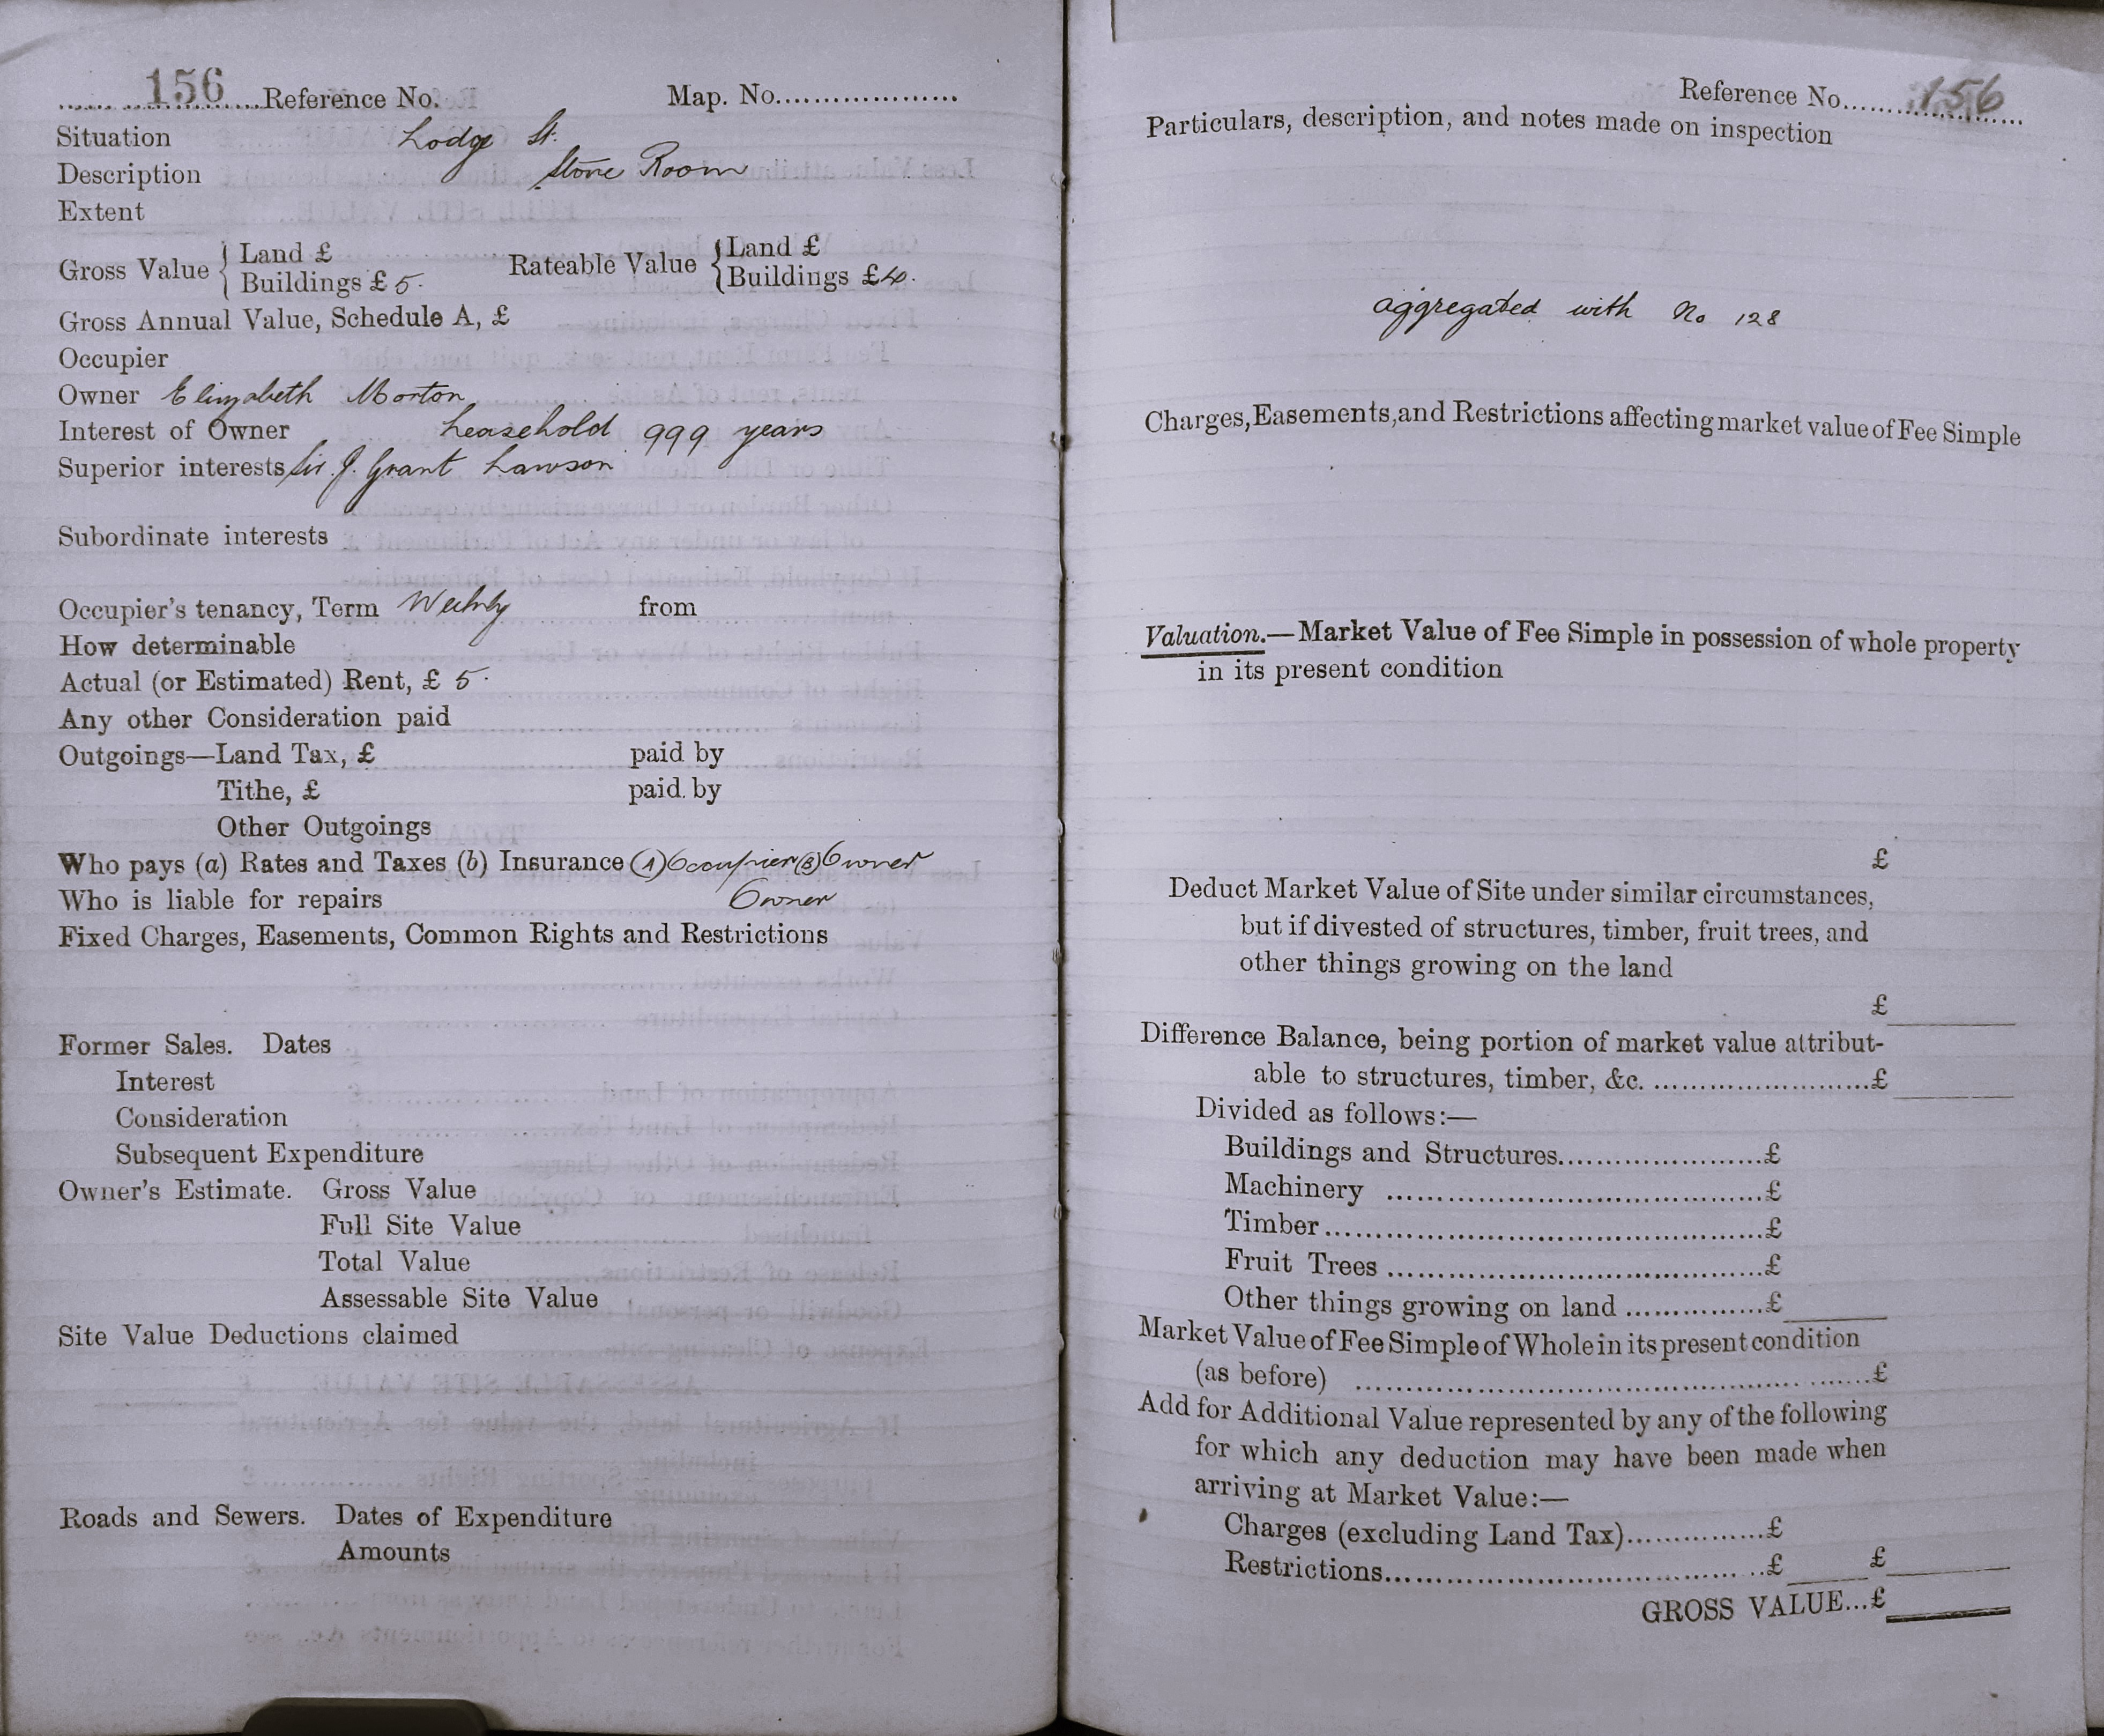 156 Reference No. Map. No...................
Situation Lodge St.
Description Store Room
Extent
Gross Value { Land £ Rateable Value { Land £
Buildings £ 5. Buildings £ 4.
Gross Annual Value, Schedule A, £
Occupier
Owner Elizabeth Morton
Interest of Owner Leasehold 999 years
Superior interests Sir J. Grant Lawson
Subordinate interests
Occupier's tenancy, Term Weekly from
How determinable
Actual (or Estimated) Rent, £ 5.
Any other Consideration paid
Outgoings—Land Tax, £ paid by
Tithe, £ paid by
Other Outgoings
Who pays (a) Rates and Taxes (b) Insurance (A) Occupier (B) Owner
Who is liable for repairs Owner
Fixed Charges, Easements, Common Rights and Restrictions
Former Sales. Dates
Interest
Consideration
Subsequent Expenditure
Owner's Estimate. Gross Value
Full Site Value
Total Value
Assessable Site Value
Site Value Deductions claimed
Roads and Sewers. Dates of Expenditure
Amounts
Reference No. 156
Particulars, description, and notes made on inspection
aggregated with No 128
Charges, Easements, and Restrictions affecting market value of Fee Simple
Valuation.—Market Value of Fee Simple in possession of whole property
in its present condition
£
Deduct Market Value of Site under similar circumstances,
but if divested of structures, timber, fruit trees, and
other things growing on the land
£
Difference Balance, being portion of market value attribut-
able to structures, timber, &c. ........................£
Divided as follows:—
Buildings and Structures.......................£
Machinery .......................................£
Timber.............................................£
Fruit Trees .......................................£
Other things growing on land ...............£
Market Value of Fee Simple of Whole in its present condition
(as before) ......................................................£
Add for Additional Value represented by any of the following
for which any deduction may have been made when
arriving at Market Value:—
Charges (excluding Land Tax)...............£
Restrictions.......................................£ £
GROSS VALUE...£